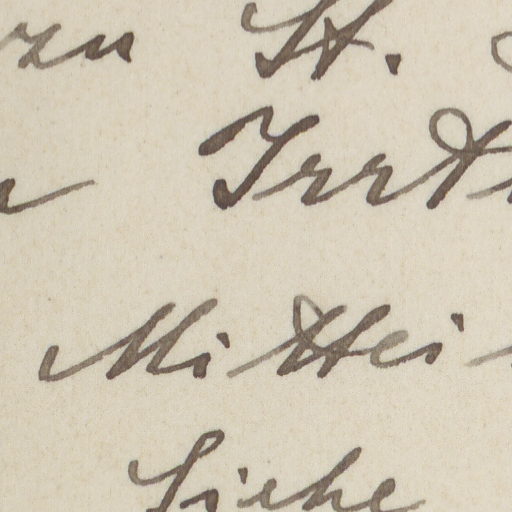 zu St.
Irrt
Mittei
Siehe